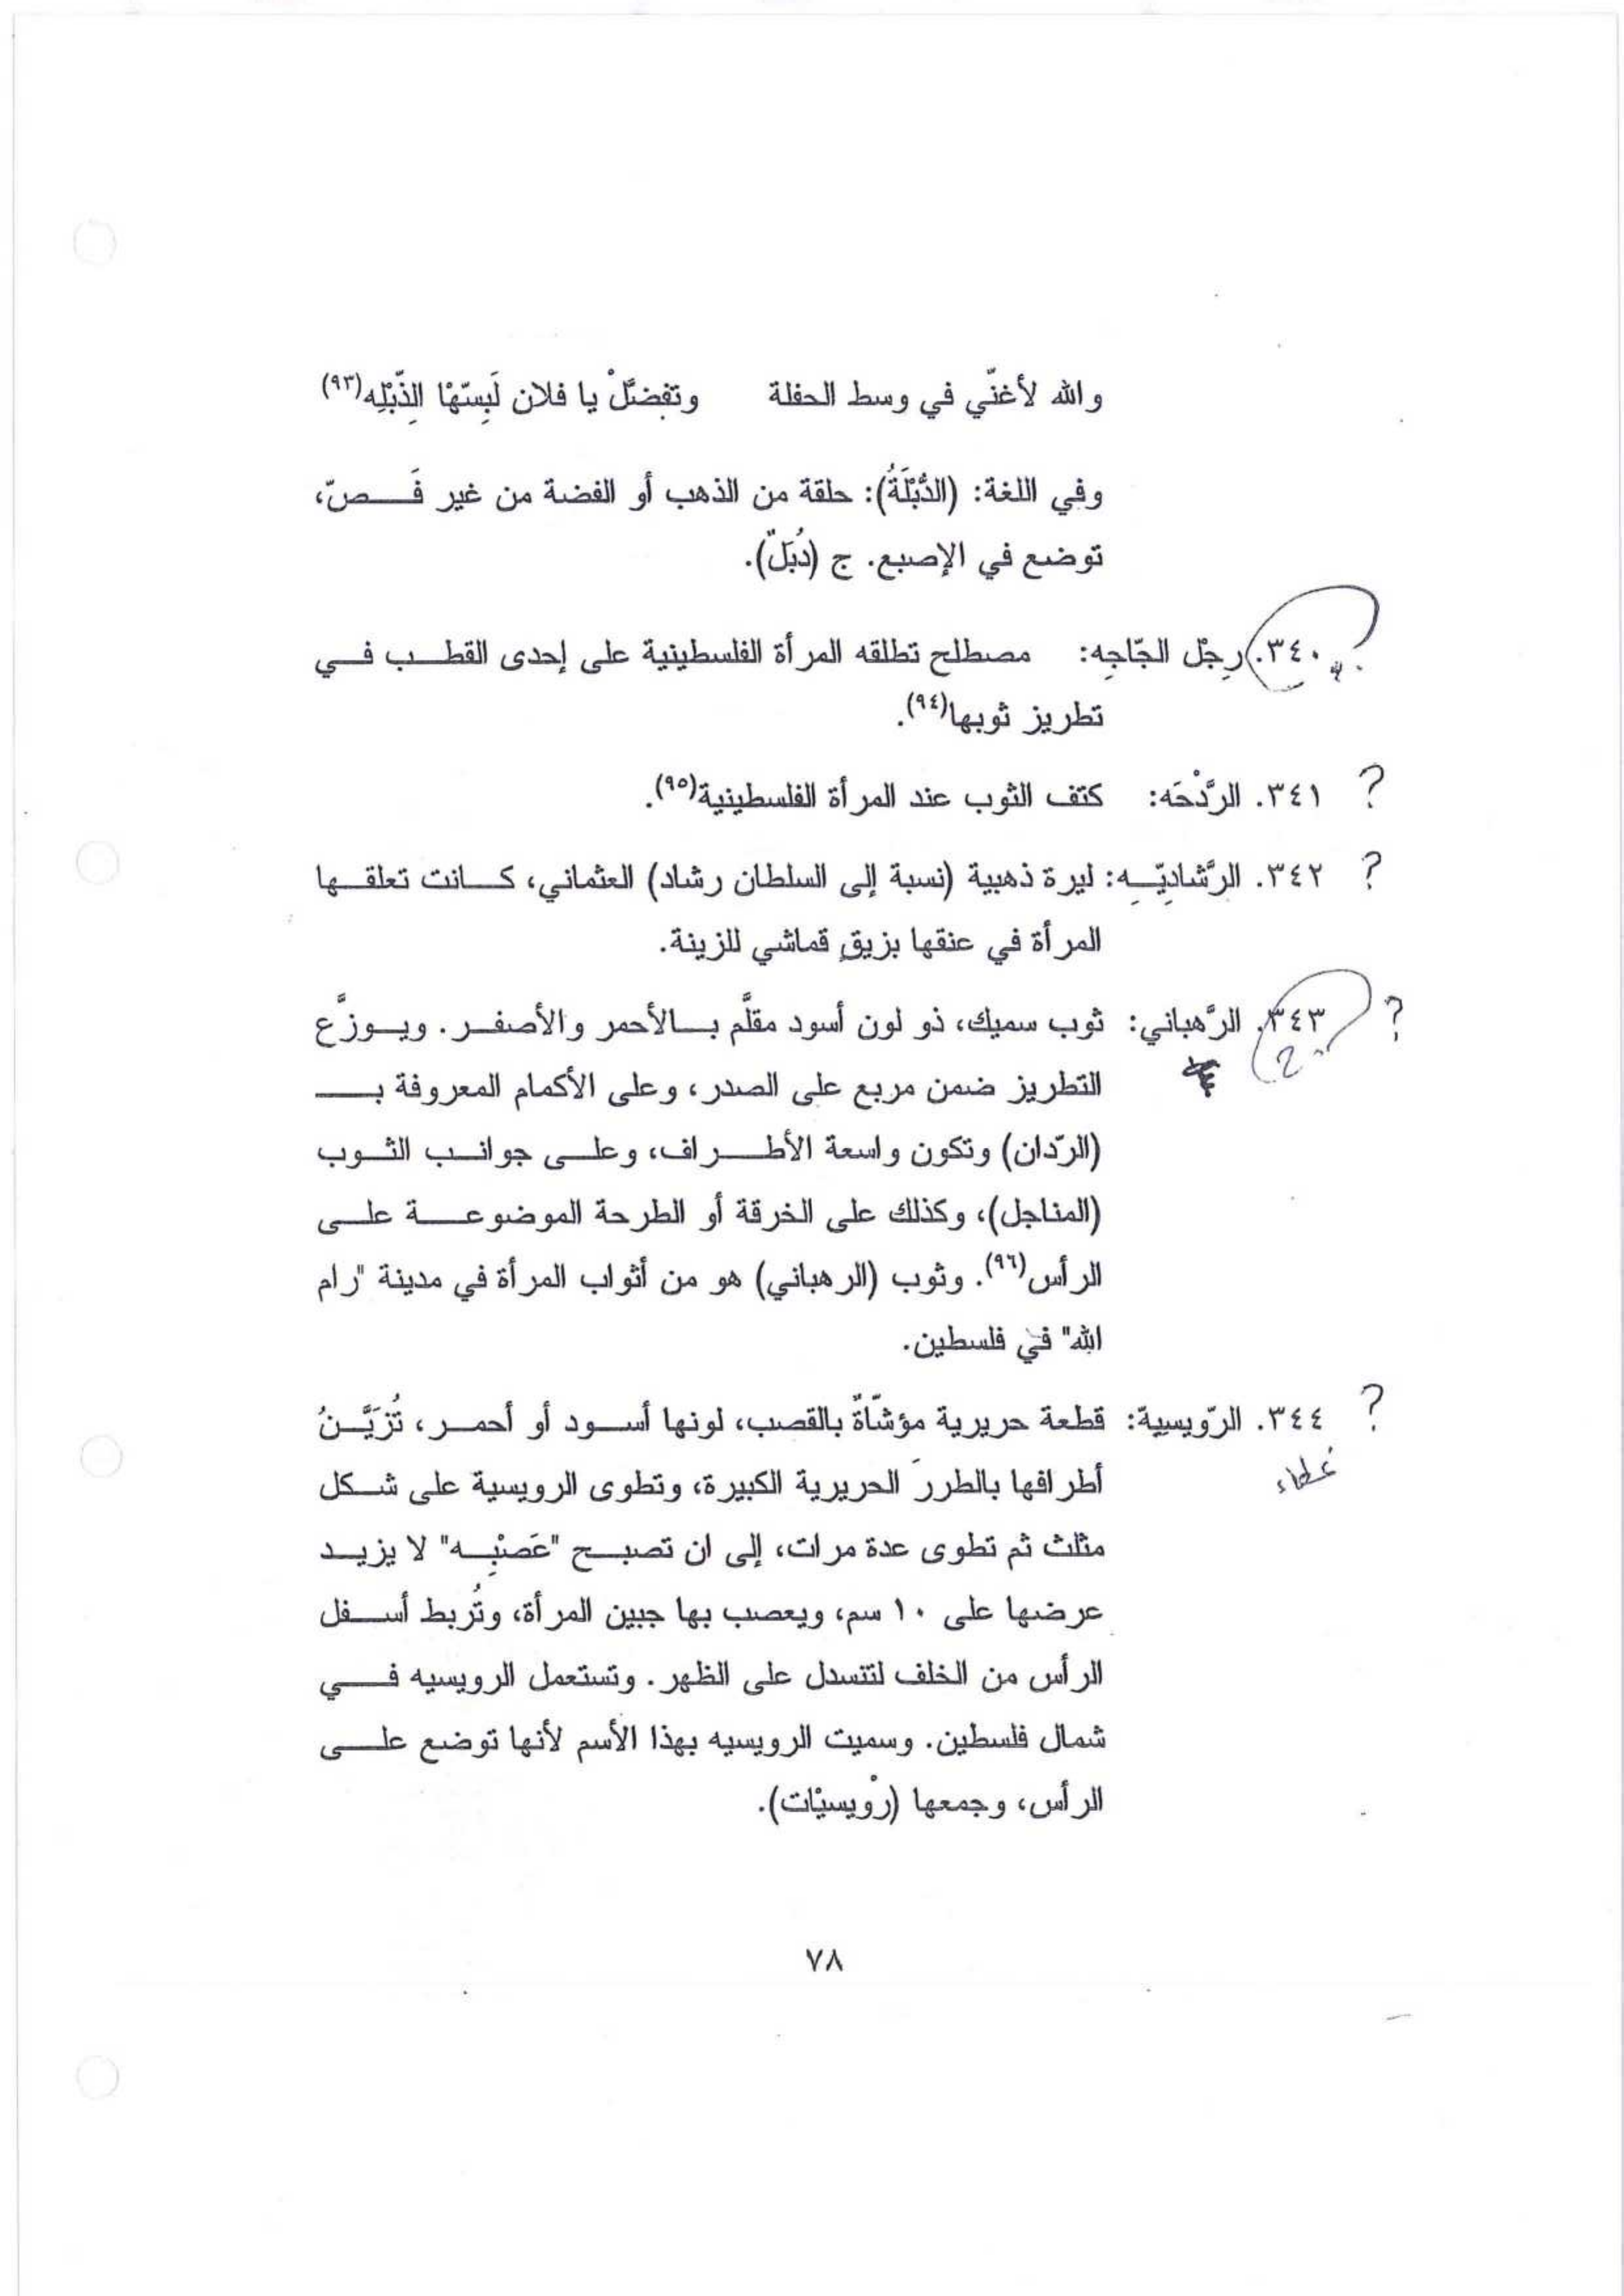 والله لأغنّي في وسط الحفلة وتفضَّلْ يا فلان لَبِسّهْا الذِّبْلِه(٩٣)
وفي اللغة: (الدُّبْلَةُ): حلقة من الذهب أو الفضة من غير فَـــصّ،
توضع في الإصبع. ج (دُبَلٌ).
٣٤٠. رِجْل الجّاجِه: مصطلح تطلقه المرأة الفلسطينية على إحدى القطــب فــي
تطريز ثوبها(٩٤).
? ٣٤١. الرَّدْحَه: كتف الثوب عند المرأة الفلسطينية(٩٥).
? ٣٤٢. الرَّشادِيّــِه: ليرة ذهبية (نسبة إلى السلطان رشاد) العثماني، كــانت تعلقــها
المرأة في عنقها بزيقٍ قماشي للزينة.
? ٣٤٣. الرَّهباني: ثوب سميك، ذو لون أسود مقلَّم بــالأحمر والأصفــر. ويــوزَّع
?
التطريز ضمن مربع على الصدر، وعلى الأكمام المعروفة بـــ
(الردّان) وتكون واسعة الأطـــراف، وعلــى جوانــب الثــوب
(المناجل)، وكذلك على الخرقة أو الطرحة الموضوعـــة علــى
الرأس(٩٦). وثوب (الرهباني) هو من أثواب المرأة في مدينة "رام
الله" في فلسطين.
? ٣٤٤. الرّويسية: قطعة حريرية مؤشّاةٌ بالقصب، لونها أســود أو أحمــر، تُزَيَّــنُ
غطاء
أطرافها بالطررَ الحريرية الكبيرة، وتطوى الرويسية على شــكل
مثلث ثم تطوى عدة مرات، إلى ان تصبــح "عَصْبِــه" لا يزيــد
عرضها على ١٠ سم، ويعصب بها جبين المرأة، وتُربط أســفل
الرأس من الخلف لتنسدل على الظهر. وتستعمل الرويسيه فـــي
شمال فلسطين. وسميت الرويسيه بهذا الأسم لأنها توضع علــى
الرأس، وجمعها (رْويسيْات).
٧٨